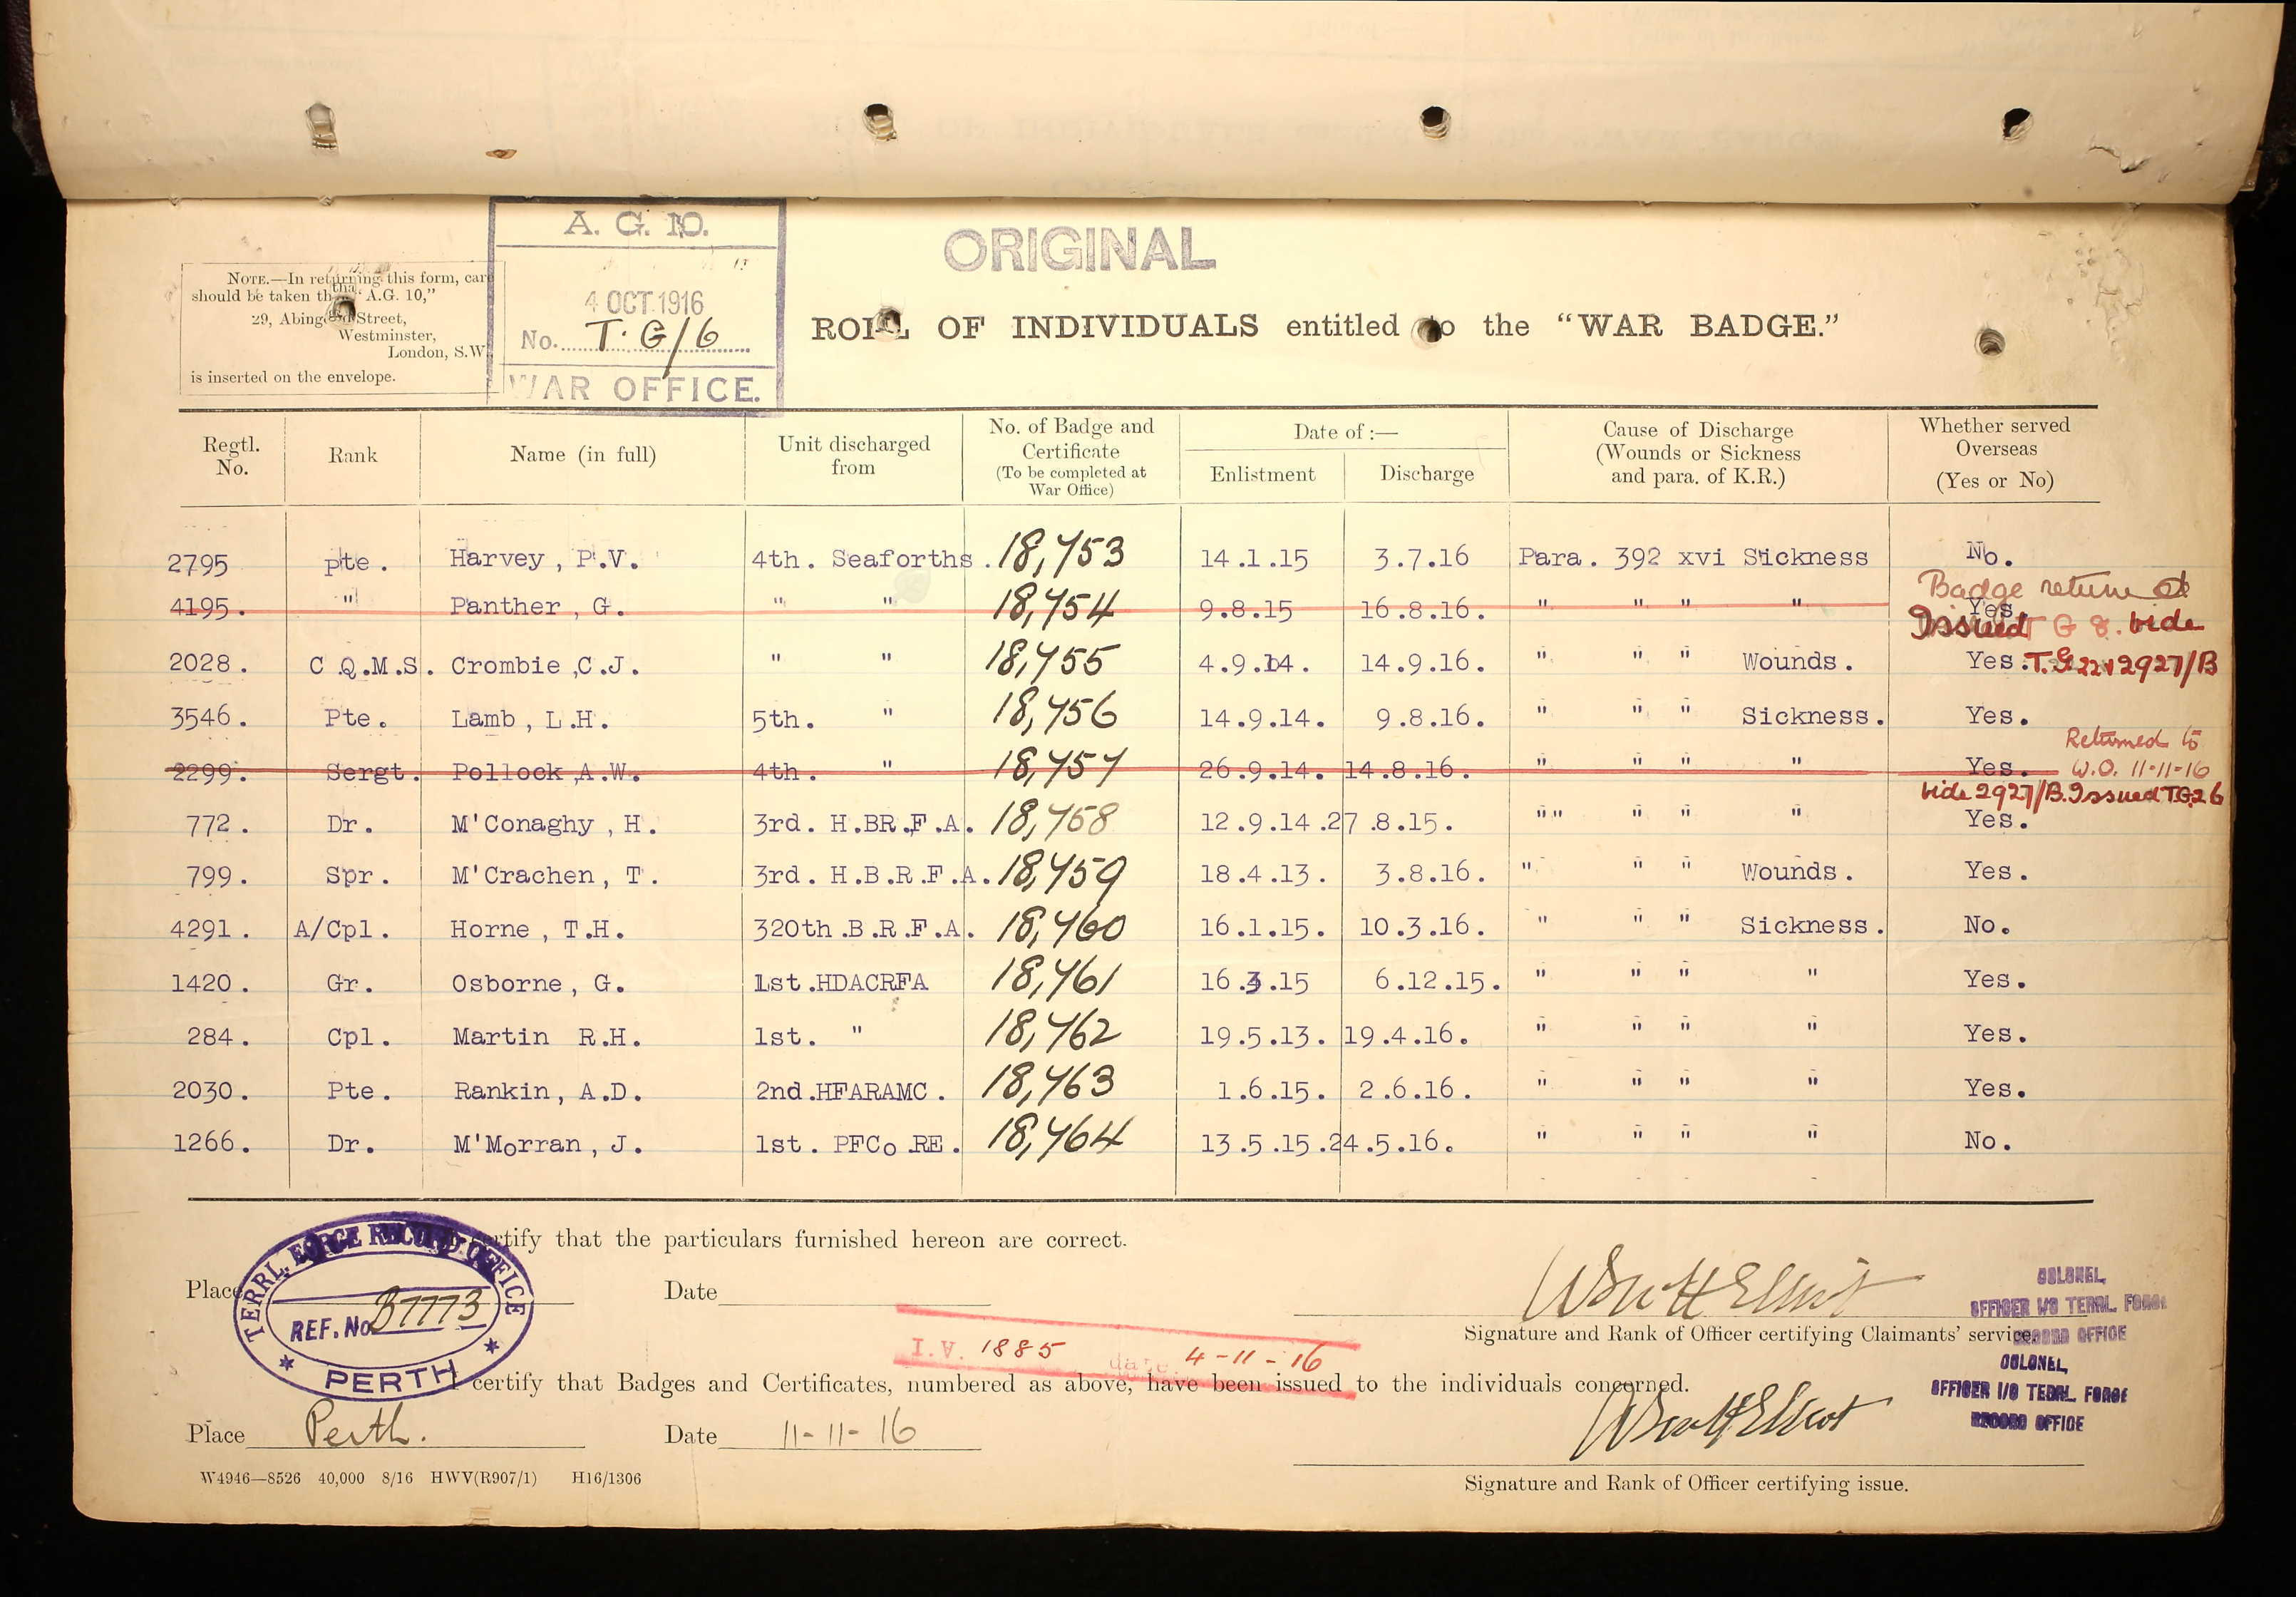 A. G. 10.
4 OCT. 1916
No. T. G/6
WAR OFFICE.
ORIGINAL
NOTE.—In returning this form, care
should be taken that "A.G. 10,"
29, Abingdon Street,
Westminster,
London, S.W.
is inserted on the envelope.
ROLL OF INDIVIDUALS entitled to the "WAR BADGE."
Regtl. No. Rank Name (in full) Unit discharged from No. of Badge and Certificate (To be completed at War Office) Date of :— Enlistment Discharge Cause of Discharge (Wounds or Sickness and para. of K.R.) Whether served Overseas (Yes or No)
2795 Pte. Harvey, P.V. 4th. Seaforths. 18,753 14.1.15 3.7.16 Para. 392 xvi Sickness No.
4195. " Panther, G. " " 18,754 9.8.15 16.8.16. " " " " Yes.
Badge returned
Issued T G 8. vide
2028. C.Q.M.S. Crombie, C.J. " " 18,755 4.9.14. 14.9.16. " " " Wounds. Yes. T.G 22 v 2927/B
3546. Pte. Lamb, L.H. 5th. " 18,756 14.9.14. 9.8.16. " " " Sickness. Yes.
2299. Sergt. Pollock, A.W. 4th. " 18,757 26.9.14. 14.8.16. " " " " Yes.
Returned to
W.O. 11-11-16
vide 2927/B. Issued T.G.26
772. Dr. M'Conaghy, H. 3rd. H.BR.F.A. 18,758 12.9.14. 27.8.15. "" " " " Yes.
799. Spr. M'Crachen, T. 3rd. H.B.R.F.A. 18,759 18.4.13. 3.8.16. " " " Wounds. Yes.
4291. A/Cpl. Horne, T.H. 320th.B.R.F.A. 18,760 16.1.15. 10.3.16. " " " Sickness. No.
1420. Gr. Osborne, G. 1st.HDACRFA 18,761 16.3.15 6.12.15. " " " " Yes.
284. Cpl. Martin R.H. 1st. " 18,762 19.5.13. 19.4.16. " " " " Yes.
2030. Pte. Rankin, A.D. 2nd.HFARAMC. 18,763 1.6.15. 2.6.16. " " " " Yes.
1266. Dr. M'Morran, J. 1st. PFCo.RE. 18,764 13.5.15. 24.5.16. " " " " No.
certify that the particulars furnished hereon are correct.
TERRL. FORCE RECORD OFFICE
REF. No. B7773
PERTH
Place Date
COLONEL,
OFFICER I/C TERRL. FORCE
RECORD OFFICE
Signature and Rank of Officer certifying Claimants' service.
I.V. 1885 date 4-11-16
I certify that Badges and Certificates, numbered as above, have been issued to the individuals concerned.
COLONEL,
OFFICER I/C TERRL. FORCE
RECORD OFFICE
Place Perth. Date 11-11-16
Signature and Rank of Officer certifying issue.
W4946—8526 40,000 8/16 HWV(R907/1) H16/1306